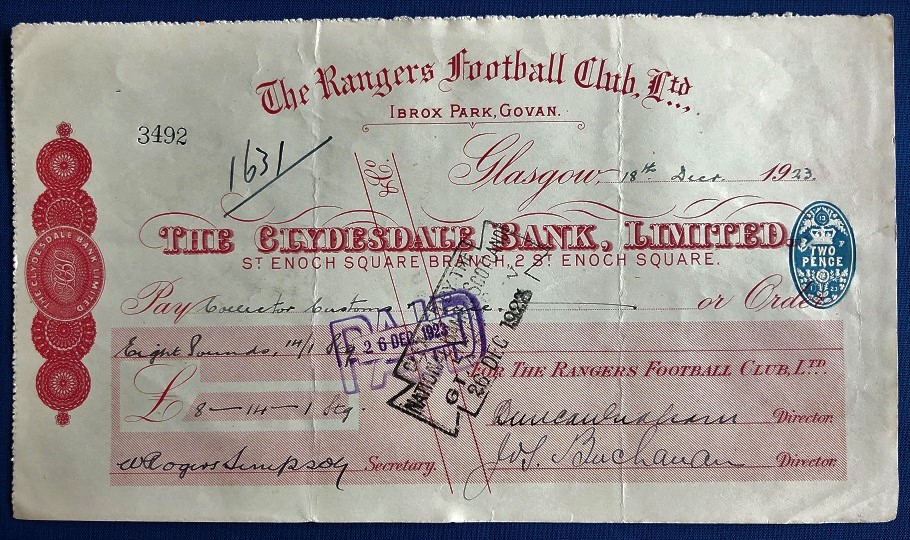 The Rangers Football Club, Ltd.,
IBROX PARK, GOVAN.
3492
1631
&Co.
Glasgow, 18th Decr. 1923.
THE CLYDESDALE BANK, LIMITED.
ST ENOCH SQUARE BRANCH, 2 ST ENOCH SQUARE.
TWO PENCE
THE CLYDESDALE BANK LIMITED
Pay Collector Customs or Order
PAID
26 DEC. 1923
NATIONAL
SCOTLAND
26 DEC 1923
Eight Pounds, 14/1 Stg
£ 8-14-1 Stg.
FOR THE RANGERS FOOTBALL CLUB, LTD.
Duncan Graham Director.
W Rogers Simpson Secretary.
Jos. Buchanan Director.